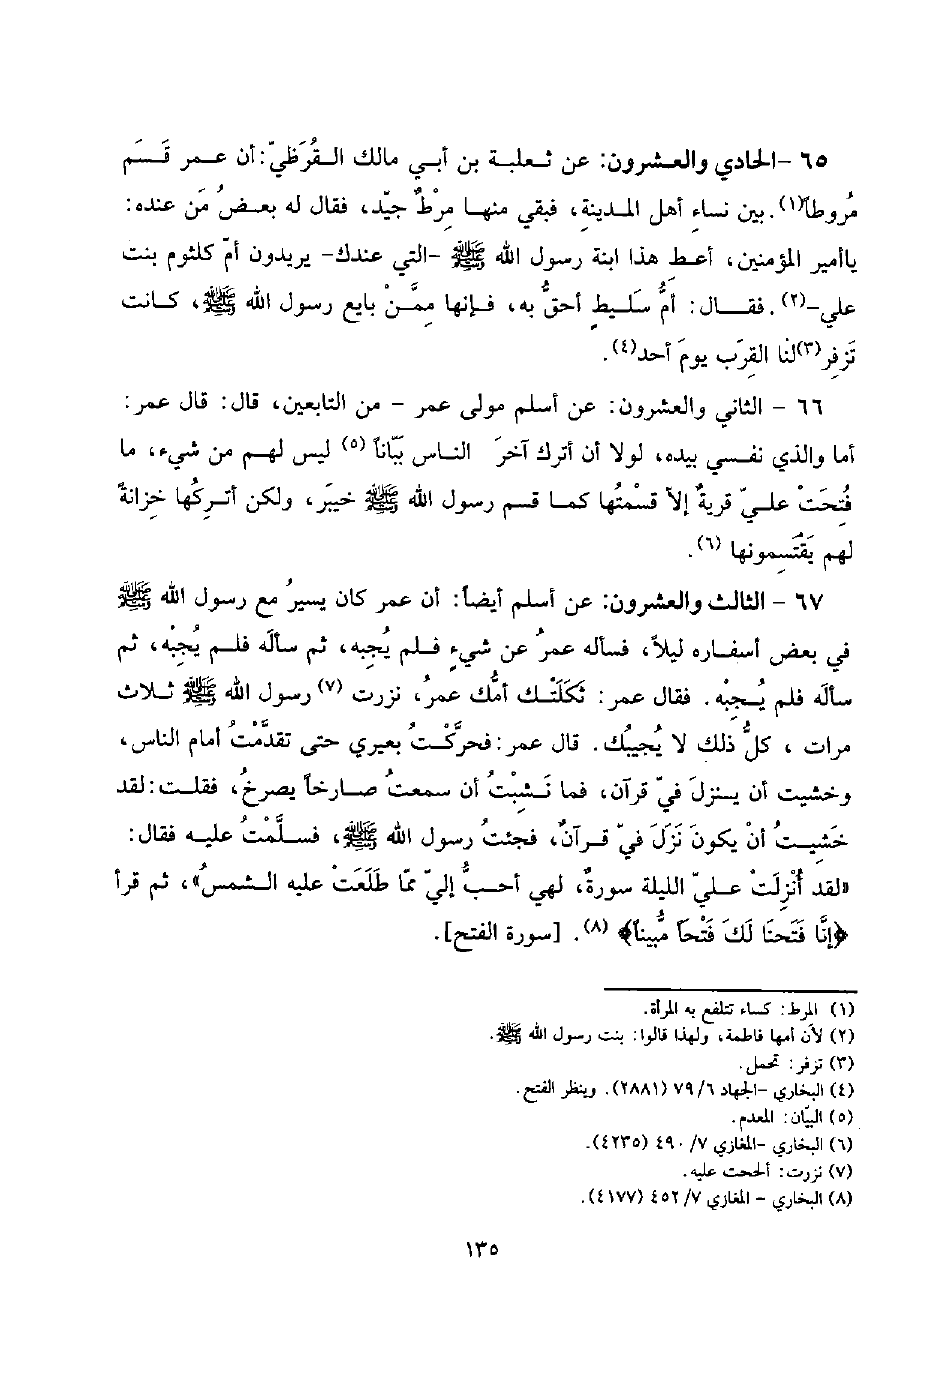 ٦٥ -الحادي والعشرون: عن ثعلبة بن أبي مالك القُرَظيّ: أن عمر قَسَم
مُروطاً(١). بين نساءِ أهل المدينةِ، فبقي منها مِرْطٌ جيّد، فقال له بعضُ مَن عنده:
ياأمير المؤمنين، أعط هذا ابنة رسول الله ﷺ -التي عندك- يريدون أمّ كلثوم بنت
علي-(٢). فقال: أمُّ سَليطٍ أحقُّ به، فإنها ممَّنْ بايع رسول الله ﷺ، كانت
تَزفِر(٣)لنا القِرَب يومَ أحد(٤).
٦٦ - الثاني والعشرون: عن أسلم مولى عمر - من التابعين، قال: قال عمر:
أما والذي نفسي بيده، لولا أن أترك آخرَ الناس بَبّاناً (٥) ليس لهم من شيء، ما
فُتِحَتْ عليّ قريةٌ إلاّ قسْمتُها كما قسم رسول الله ﷺ خيبَر، ولكن أتركُها خزانةً
لهم يَقْتَسِمونها (٦).
٦٧ - الثالث والعشرون: عن أسلم أيضاً: أن عمر كان يسيرُ مع رسول الله ﷺ
في بعض أسفاره ليلاً، فسأله عمرُ عن شيءٍ فلم يُجبه، ثم سألَه فلم يُجبْه، ثم
سألَه فلم يُجِبْه. فقال عمر: ثَكَلَتْك أمُّك عمرُ، نزرت (٧) رسول الله ﷺ ثلاث
مرات ، كلُّ ذلك لا يُجيبُك. قال عمر: فحرَّكْتُ بعيري حتى تقدَّمْتُ أمام الناس،
وخشيت أن ينزلَ فيّ قرآن، فما نَشِبْتُ أن سمعتُ صارخاً يصرخُ، فقلت: لقد
خَشيتُ أنْ يكونَ نَزَلَ فيّ قرآنٌ، فجئتُ رسول الله ﷺ، فسلَّمْتُ عليه فقال:
«لقد أُنْزِلَتْ عليّ الليلة سورةٌ، لهي أحبُّ إليّ ممّا طَلَعَتْ عليه الشمسُ»، ثم قرأ
﴿إنَّا فَتَحنَا لَكَ فَتْحاً مُّبيناً﴾ (٨). [سورة الفتح].
(١) المرط: كساء تتلفع به المرأة.
(٢) لأن أمها فاطمة، ولهذا قالوا: بنت رسول الله ﷺ.
(٣) تزفر: تحمل.
(٤) البخاري -الجهاد ٦/ ٧٩ (٢٨٨١). وينظر الفتح.
(٥) البَبّان: المعدم.
(٦) البخاري -المغازي ٧/ ٤٩٠ (٤٢٣٥).
(٧) نزرت: ألححت عليه.
(٨) البخاري - المغازي ٧/ ٤٥٢ (٤١٧٧).
١٣٥